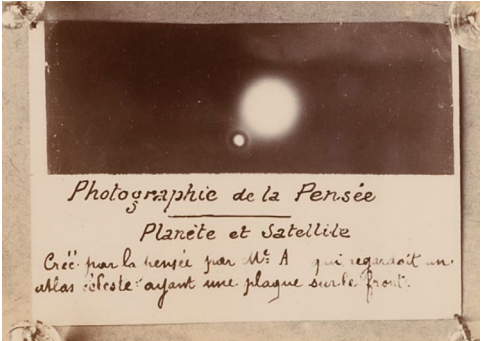 Photographie de la Pensée
Planète et Satellite
Créé par la pensée par Mr. A qui regardait un
atlas céleste ayant une plaque sur le front.